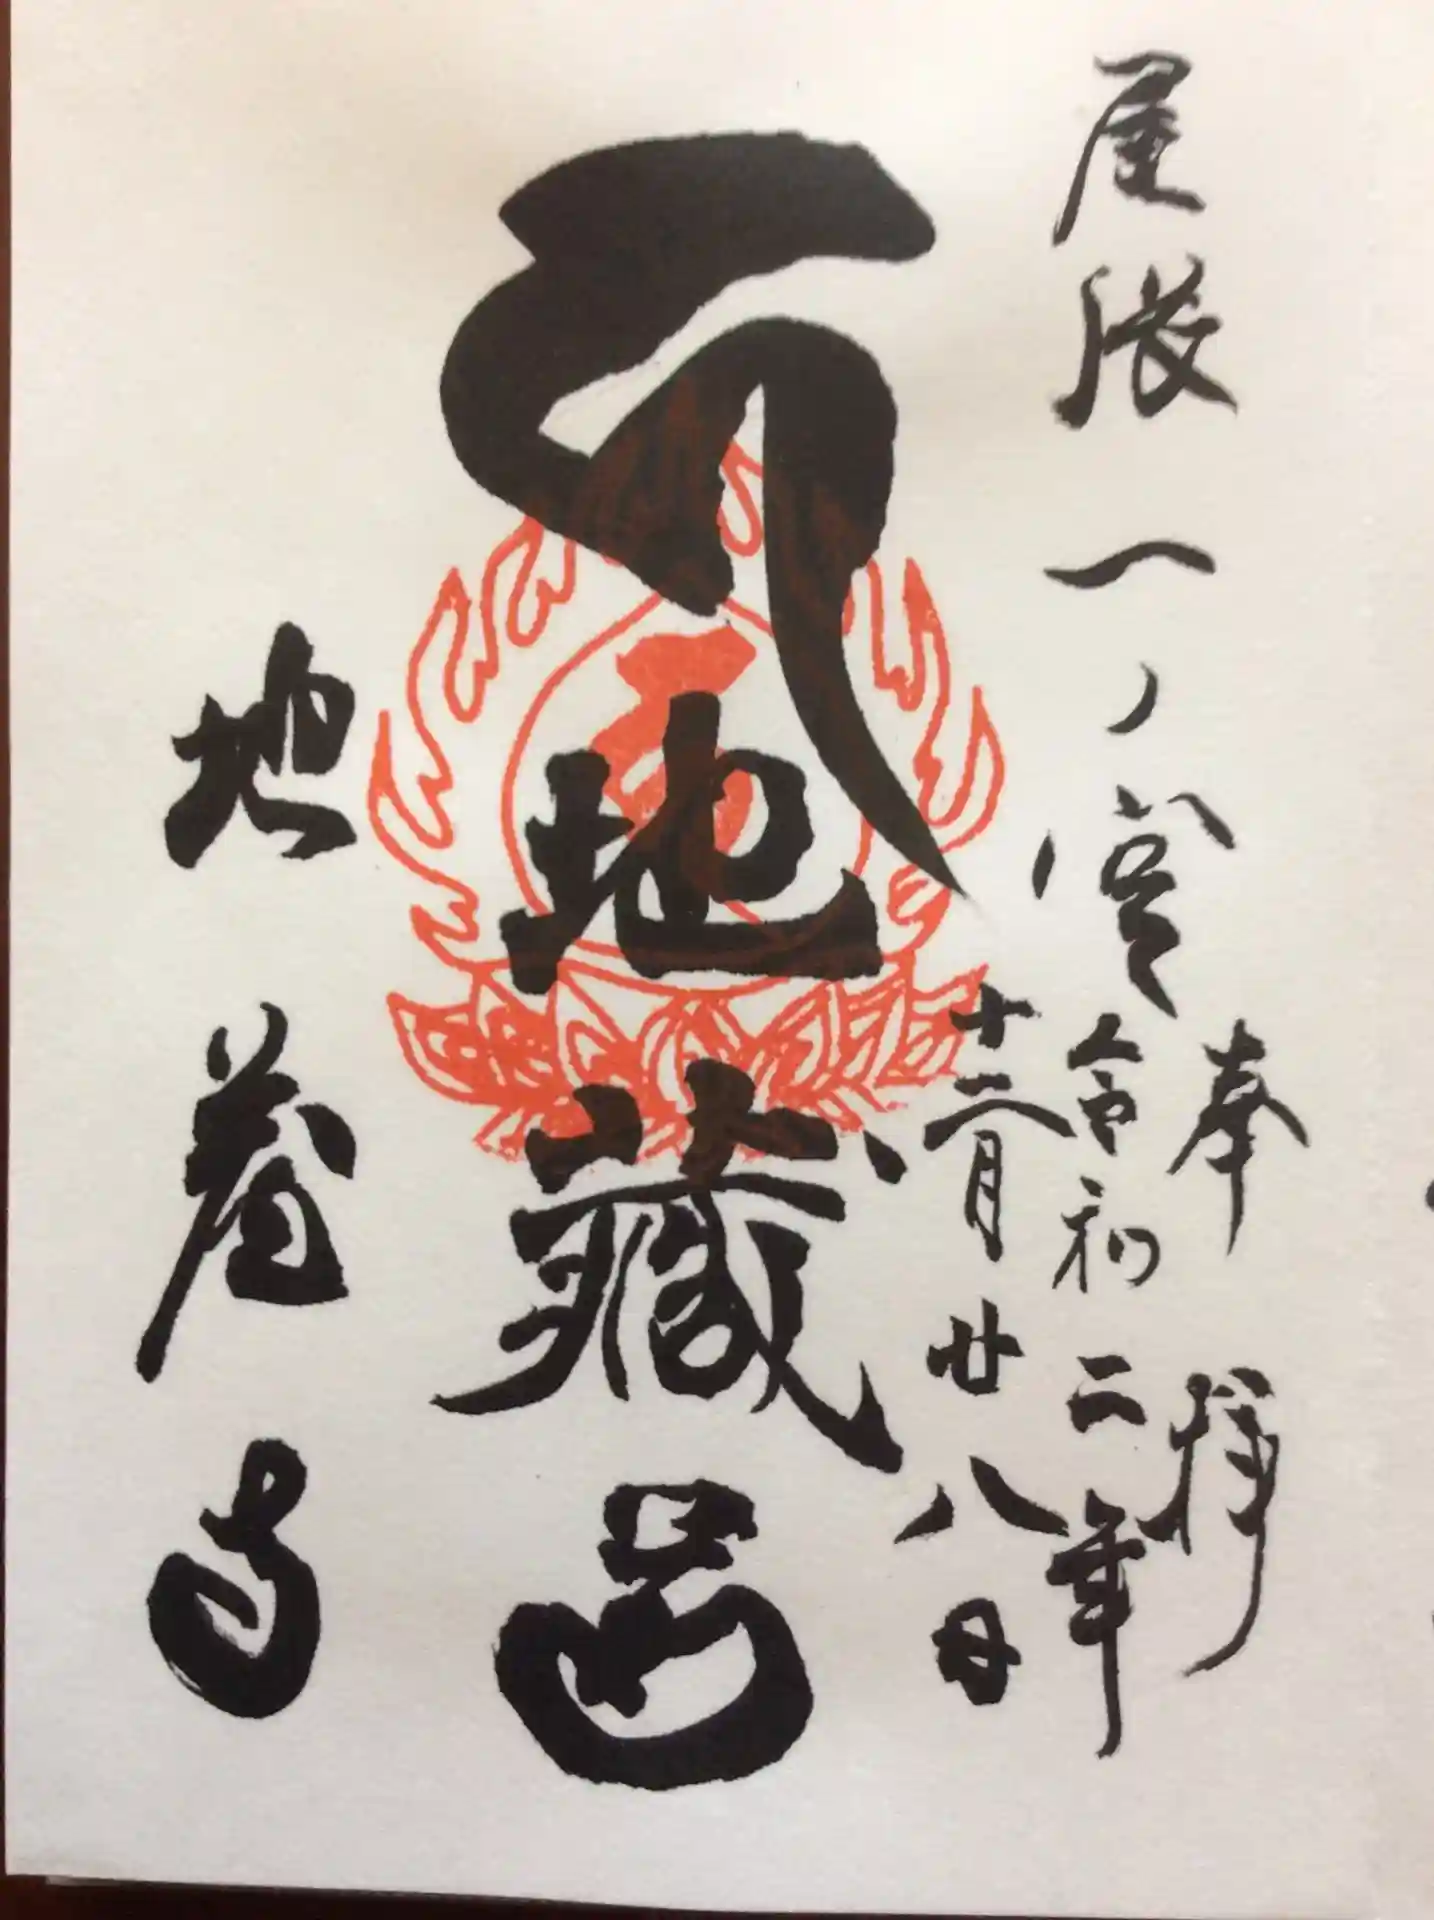 尾張一ノ宮
奉拝
令和二年
十二月廿八日
地藏尊
地蔵寺